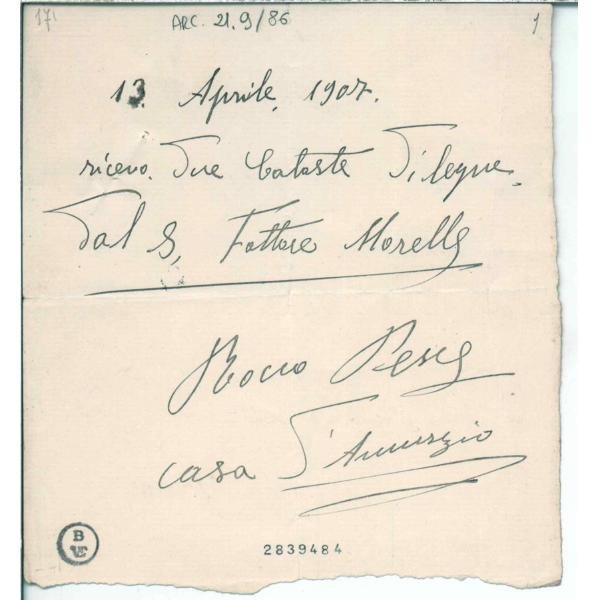 171
ARC. 21.9/86
1
13. Aprile. 1907.
ricevo. Due Cataste Di legne.
Dal S, Fattore Morelli
Rocco Pesce
casa D'Annunzio
B
VE
2839484